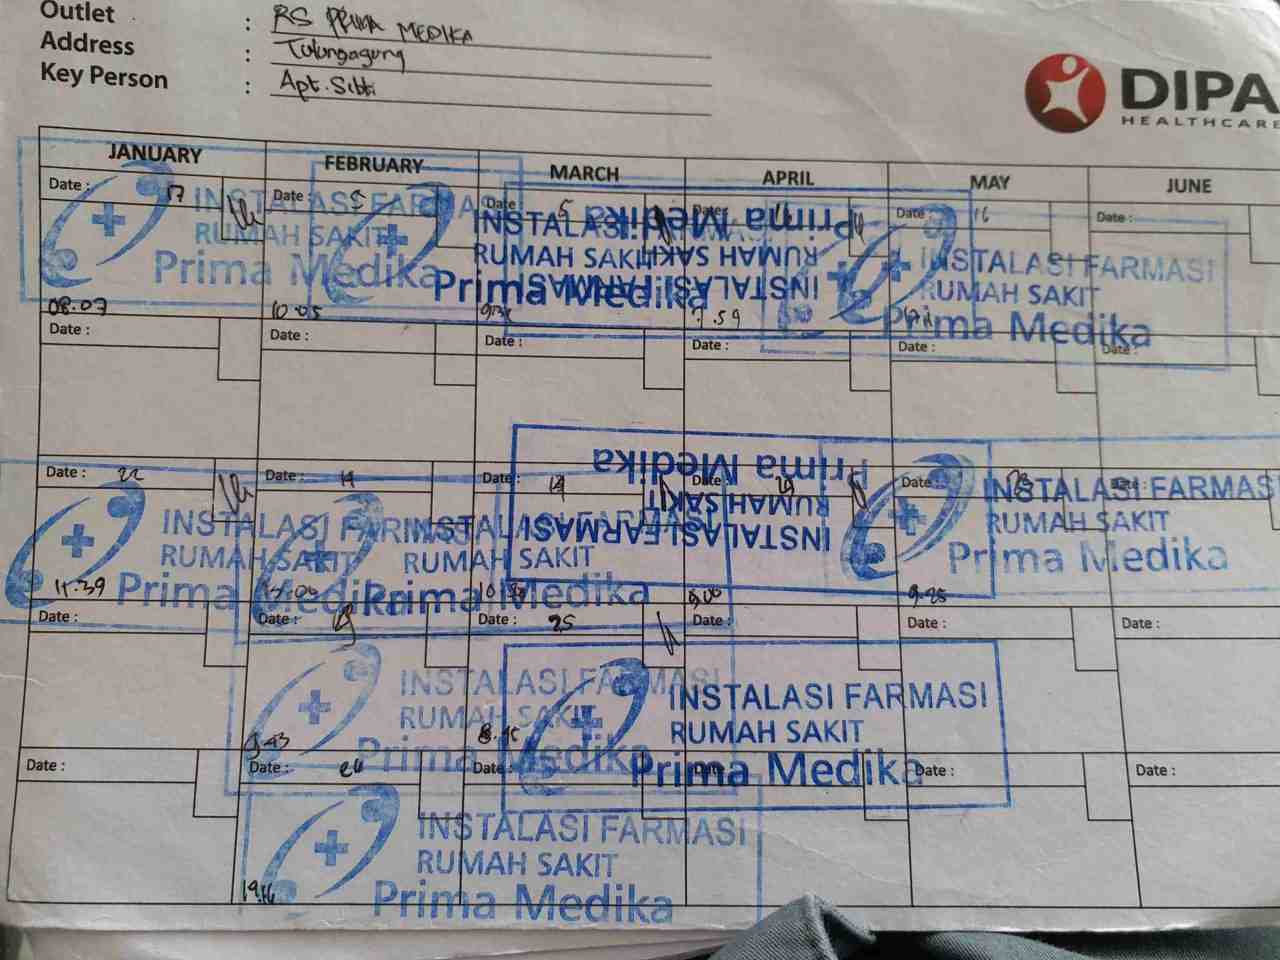 Outlet : RS PRIMA MEDIKA
Address : Tulungagung
Key Person : Apt. Sibti
DIPA
HEALTHCARE
JANUARY FEBRUARY MARCH APRIL MAY JUNE
Date : 17 Date : 5 Date : 5 Date : Date : 16 Date :
INSTALASI FARMASI
RUMAH SAKIT
Prima Medika
INSTALASI FARMASI
RUMAH SAKIT
Prima Medika
Prima Medika
RUMAH SAKIT
INSTALASI FARMASI
INSTALASI FARMASI
RUMAH SAKIT
Prima Medika
08.07 10.05 7.59
Date : Date : Date : Date : Date : Date :
Date : 22 Date : 14 Date : Date : Date : Date :
INSTALASI FARMASI
RUMAH SAKIT
Prima Medika
INSTALASI FARMASI
RUMAH SAKIT
Prima Medika
Prima Medika
RUMAH SAKIT
INSTALASI FARMASI
INSTALASI FARMASI
RUMAH SAKIT
Prima Medika
11.39 9.25
Date : Date : Date : 25 Date : Date : Date :
INSTALASI FARMASI
RUMAH SAKIT
Prima Medika
INSTALASI FARMASI
RUMAH SAKIT
Prima Medika
9.43 8.15
Date : Date : 26 Date : Date : Date : Date :
INSTALASI FARMASI
RUMAH SAKIT
Prima Medika